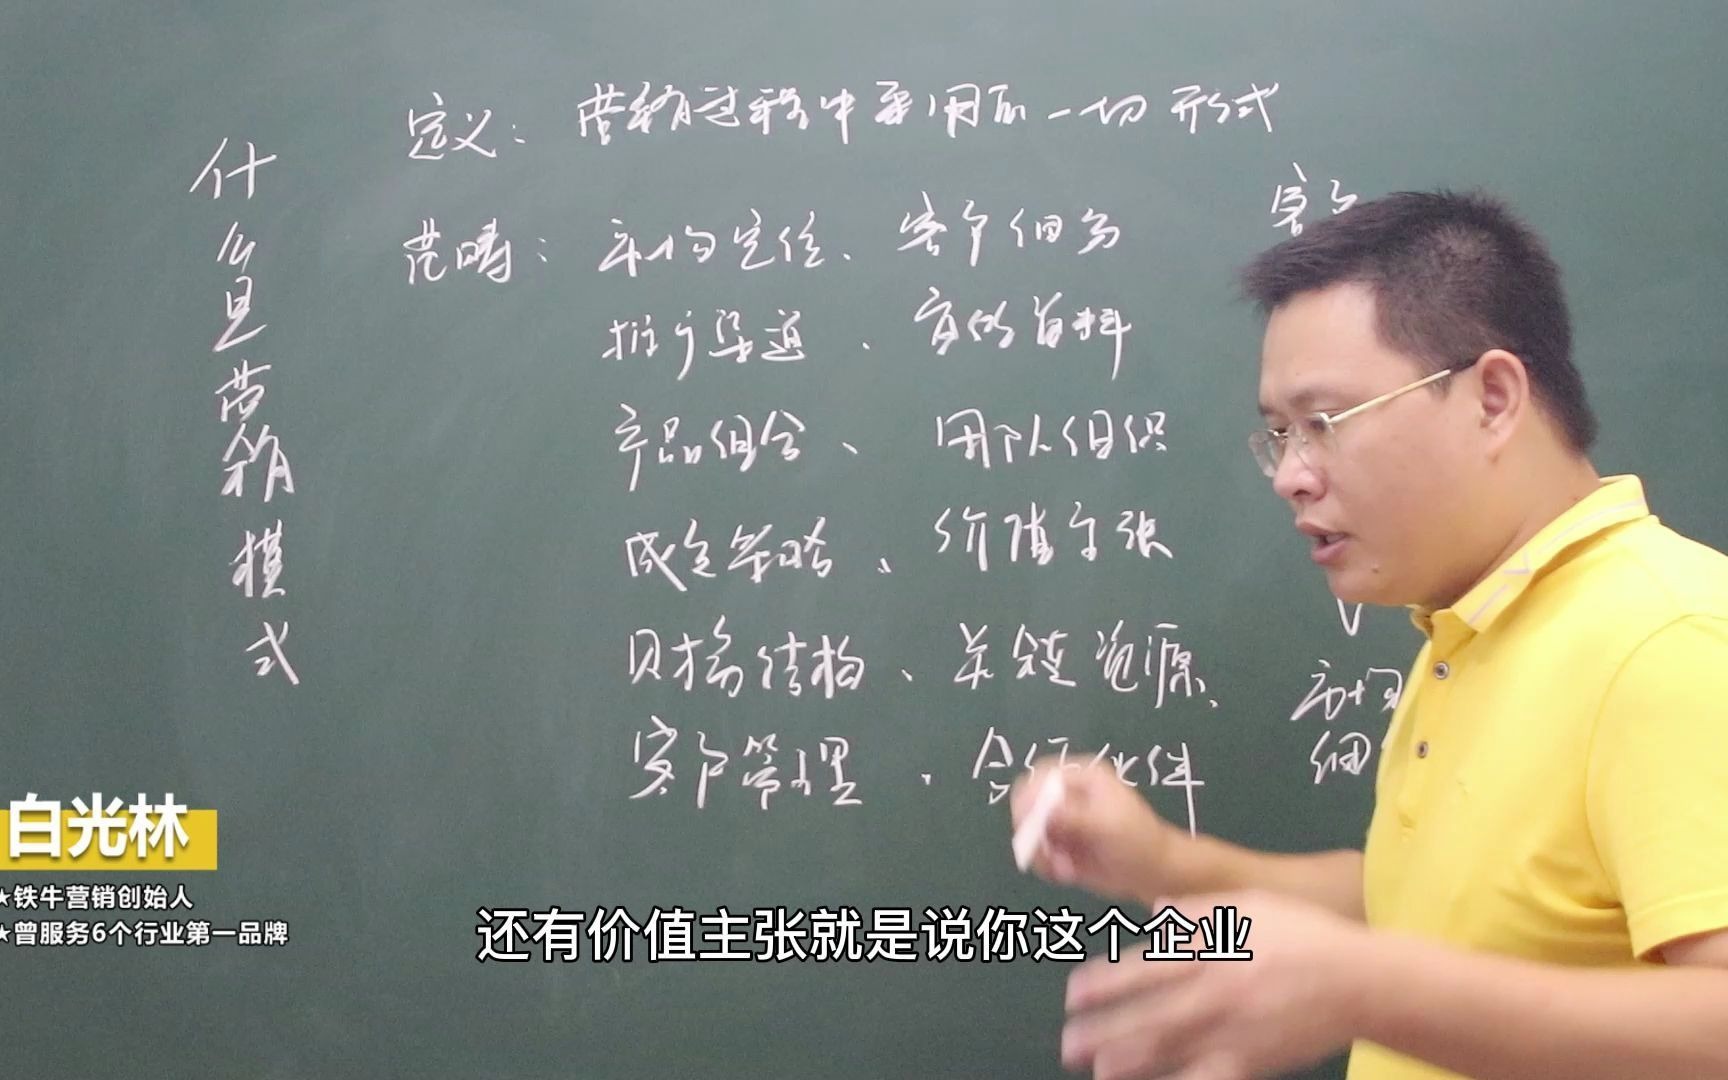 什么是营销模式
定义：营销过程中采用的一切形式
范畴：市场定位、客户细分
推广渠道、宣传资料
产品组合、团队组织
成交策略、价值主张
财务结构、关键资源、
客户管理、合作伙伴
白光林
★铁牛营销创始人
★曾服务6个行业第一品牌
还有价值主张就是说你这个企业